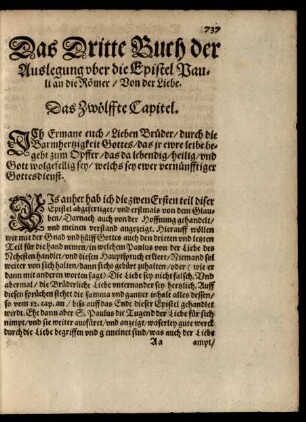 737
Das Dritte Buch der
Auslegung vber die Epistel Pau-
li an die Römer / Von der Liebe.
Das Zwölffte Capitel.
ICh Ermane euch / Lieben Brüder / durch die
Barmhertzigkeit Gottes / das jr ewre leibe be-
gebt zum Opffer / das da lebendig / heilig / vnd
Gott wolgefellig sey / welchs sey ewer vernünfftiger
Gottesdienst.
BIs anher hab ich die zwen Ersten teil diser
Epistel abgefertiget / vnd erstmals von dem Glau-
ben / Darnach auch von der Hoffnung gehandelt /
vnd meinen verstand angezeigt. Hierauff wöllen
wir mit der Gnad vnd hülff Gottes auch den dritten vnd letzten
Teil für die hand nemen / in welchem Paulus von der Liebe des
Nehesten handlet / vnd diesen Hauptspruch erklert / Niemand sol
weiter von sich halten / dann sichs gebürt zuhalten / oder (wie er
dann mit anderen worten sagt) Die Liebe sey nicht falsch. Vnd
abermal / die Brüderliche Liebe vntereinander sey hertzlich. Auff
diesen sprüchen stehet die summa vnd gantzer inhalt alles dessen /
so vom 12. cap. an / biss auff das Ende dieser Epistel gehandelt
wirdt. Ehe dann aber S. Paulus die Tugend der Liebe für sich
nimpt / vnd sie weiter ausfüret / vnd anzeigt / waserley gute werck
durch die Liebe begriffen vnd gemeinet sind / was auch der Liebe
Aa ampt /